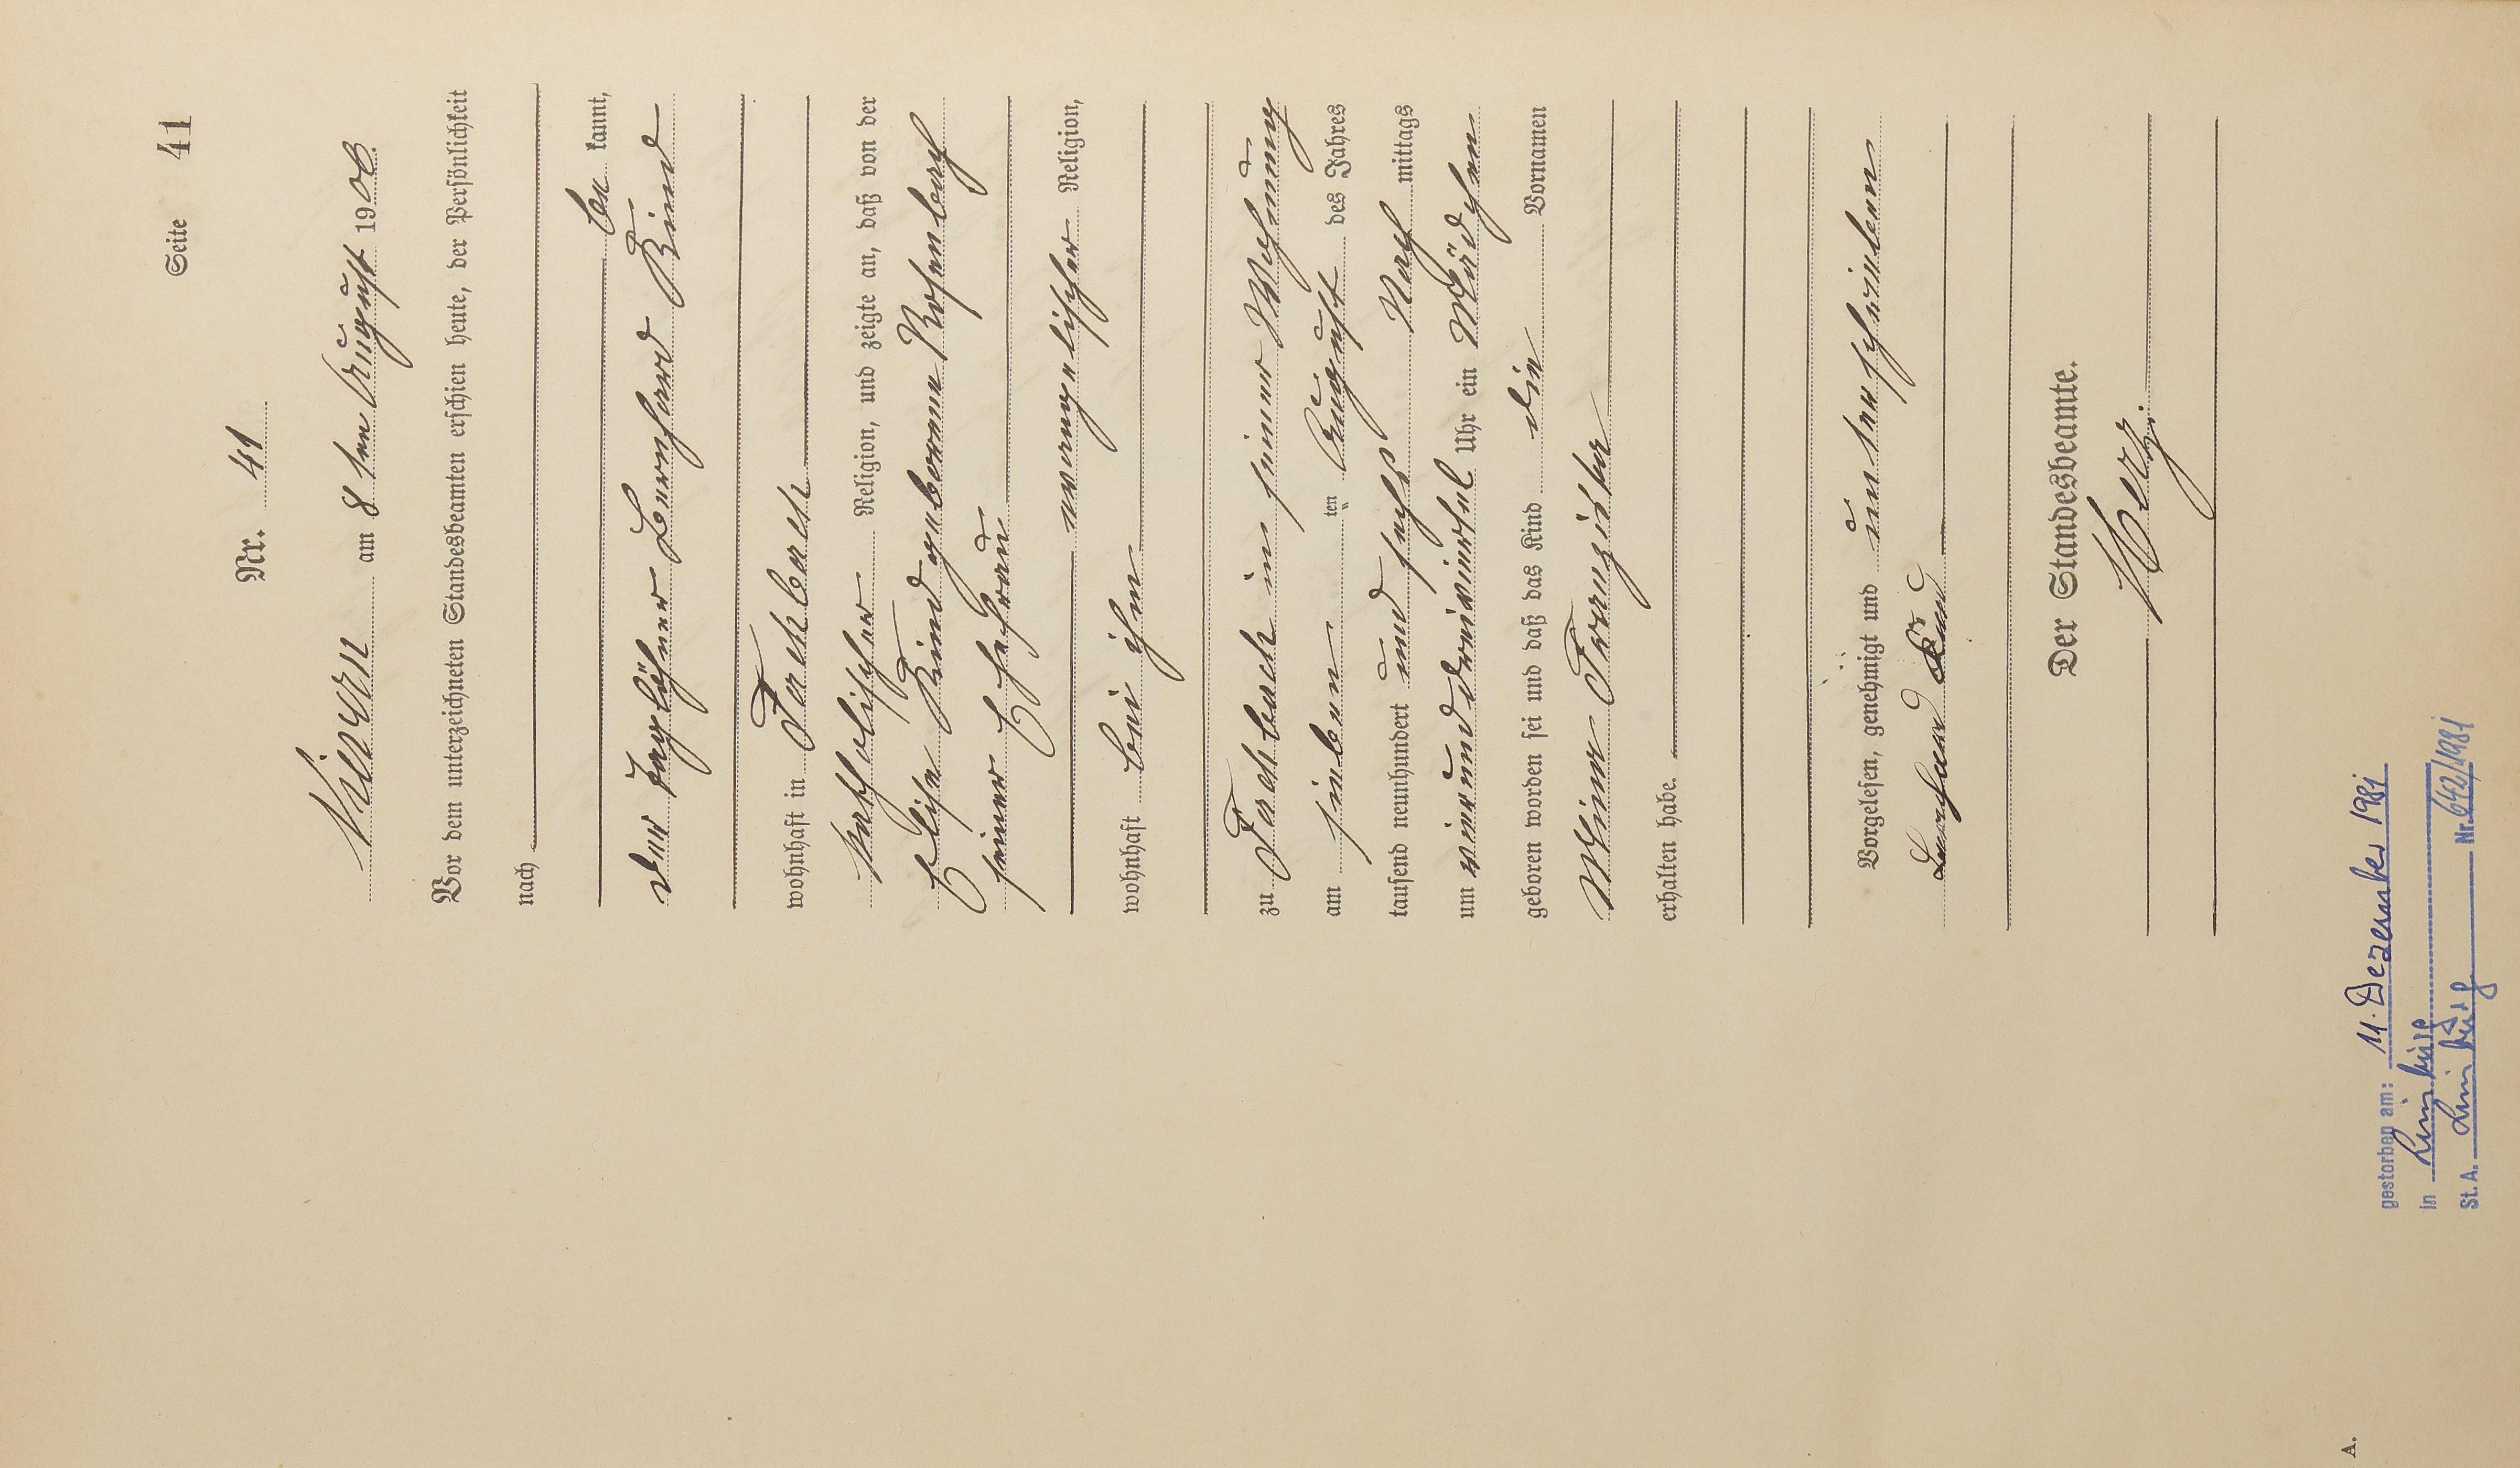 Seite 41
Nr. 41
Nievern am 8 ten August 1906.
Vor dem unterzeichneten Standesbeamten erschien heute, der Persönlichkeit
nach
be kannt,
der Taglöhner Bernhard Kind
wohnhaft in Fachbach
katholischer Religion, und zeigte an, daß von der
Elise Kind geborenen Rosenbach
seiner Ehefrau
evangelischer Religion,
wohnhaft bei ihm
zu Fachbach in seiner Wohnung
am sieben ten August des Jahres
tausend neunhundert und sechs Nach mittags
um vier und dreiviertel Uhr ein Mädchen
geboren worden sei und daß das Kind die Vornamen
Mina Franziska
erhalten habe.
Vorgelesen, genehmigt und unterschrieben
Bernhard Kind
Der Standesbeamte.
Herz.
gestorben am: 11. Dezember 1981
in Limburg
St. A. Limburg Nr. 642/1981
A.